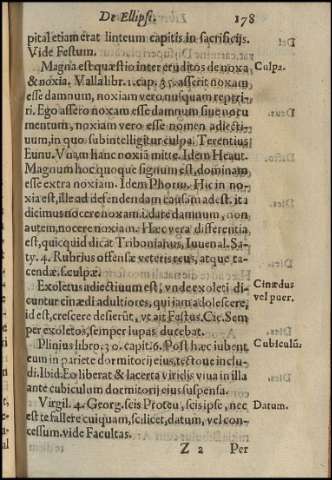 De Ellipsi. 178
pital etiam erat linteum capitis in sacrificijs.
Vide Festum.
Magna est quæstio inter eruditos de noxa Culpa.
& noxia. Valla libr. 1. cap. 35. asserit noxam
esse damnum, noxiam vero nusquam reperi-
ri. Ego assero noxam esse damnum siue nocu
mentum, noxiam vero esse nomen adiecti-
uum, in quo subintelligitur culpa. Terentius
Eunu. Vnam hanc noxiã mitte. Idem Heaut.
Magnum hoc quoque signum est, dominam
esse extra noxiam. Idem Phorm. Hic in no-
xia est, ille ad defendendam causam adest. ita
dicimus nocere noxam. i. dare damnum, non
autem, nocere noxiam. Hæc vera differentia
est, quicquid dicat Tribonianus, Iuuenal. Sa-
ty. 4. Rubrius offensæ veteris reus, atque ta-
cendæ. s. culpæ.
Exoletus adiectiuum est, vnde exoleti di- Cinædus
cuntur cinædi adultiores, qui iam adolescere, vel puer.
id est, crescere desierũt, vt ait Festus. Cic. Sem
per exoletos, semper lupas ducebat.
Plinius libr. 30. capit. 6. Post hæc iubent Cubiculũ.
eum in pariete dormitorij eius, tectove inclu-
di. Ibid. Eo liberat & lacerta viridis viua in illa
ante cubiculum dormitorij eius suspensa.
Virgil. 4. Georg. scis Proteu, scis ipse, nec Datum.
est te fallere cuiquam, scilicet, datum, vel con-
cessum. vide Facultas.
Z 2 Per